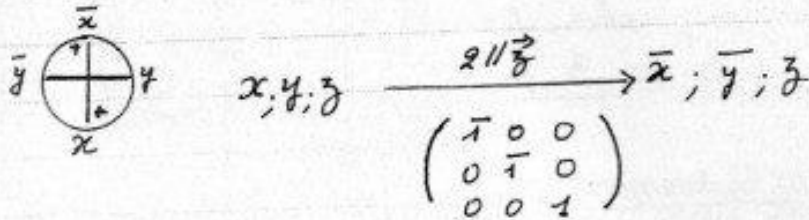 x̄
ȳ y
x
x; y; z 2//z⃗ x̄; ȳ; z
( 1̄ 0 0
0 1̄ 0
0 0 1 )